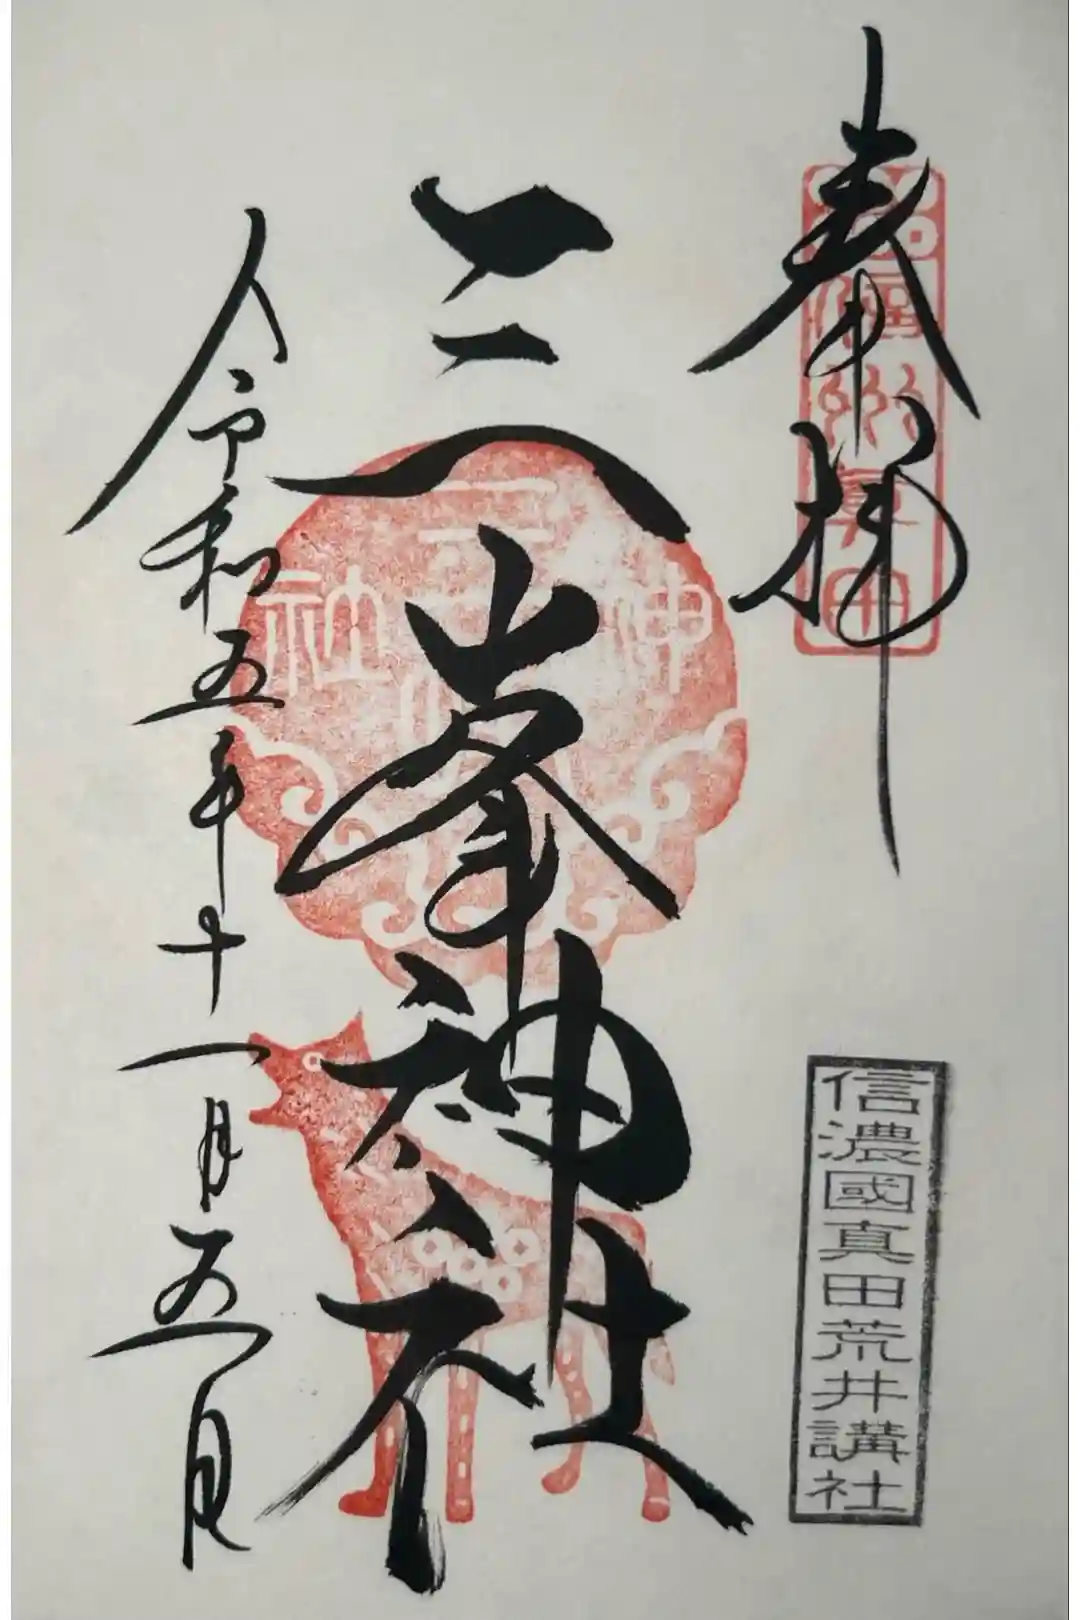 奉拝
信州真田
信濃國真田荒井講社
三峯神社
三峯神社
令和五年十一月五日